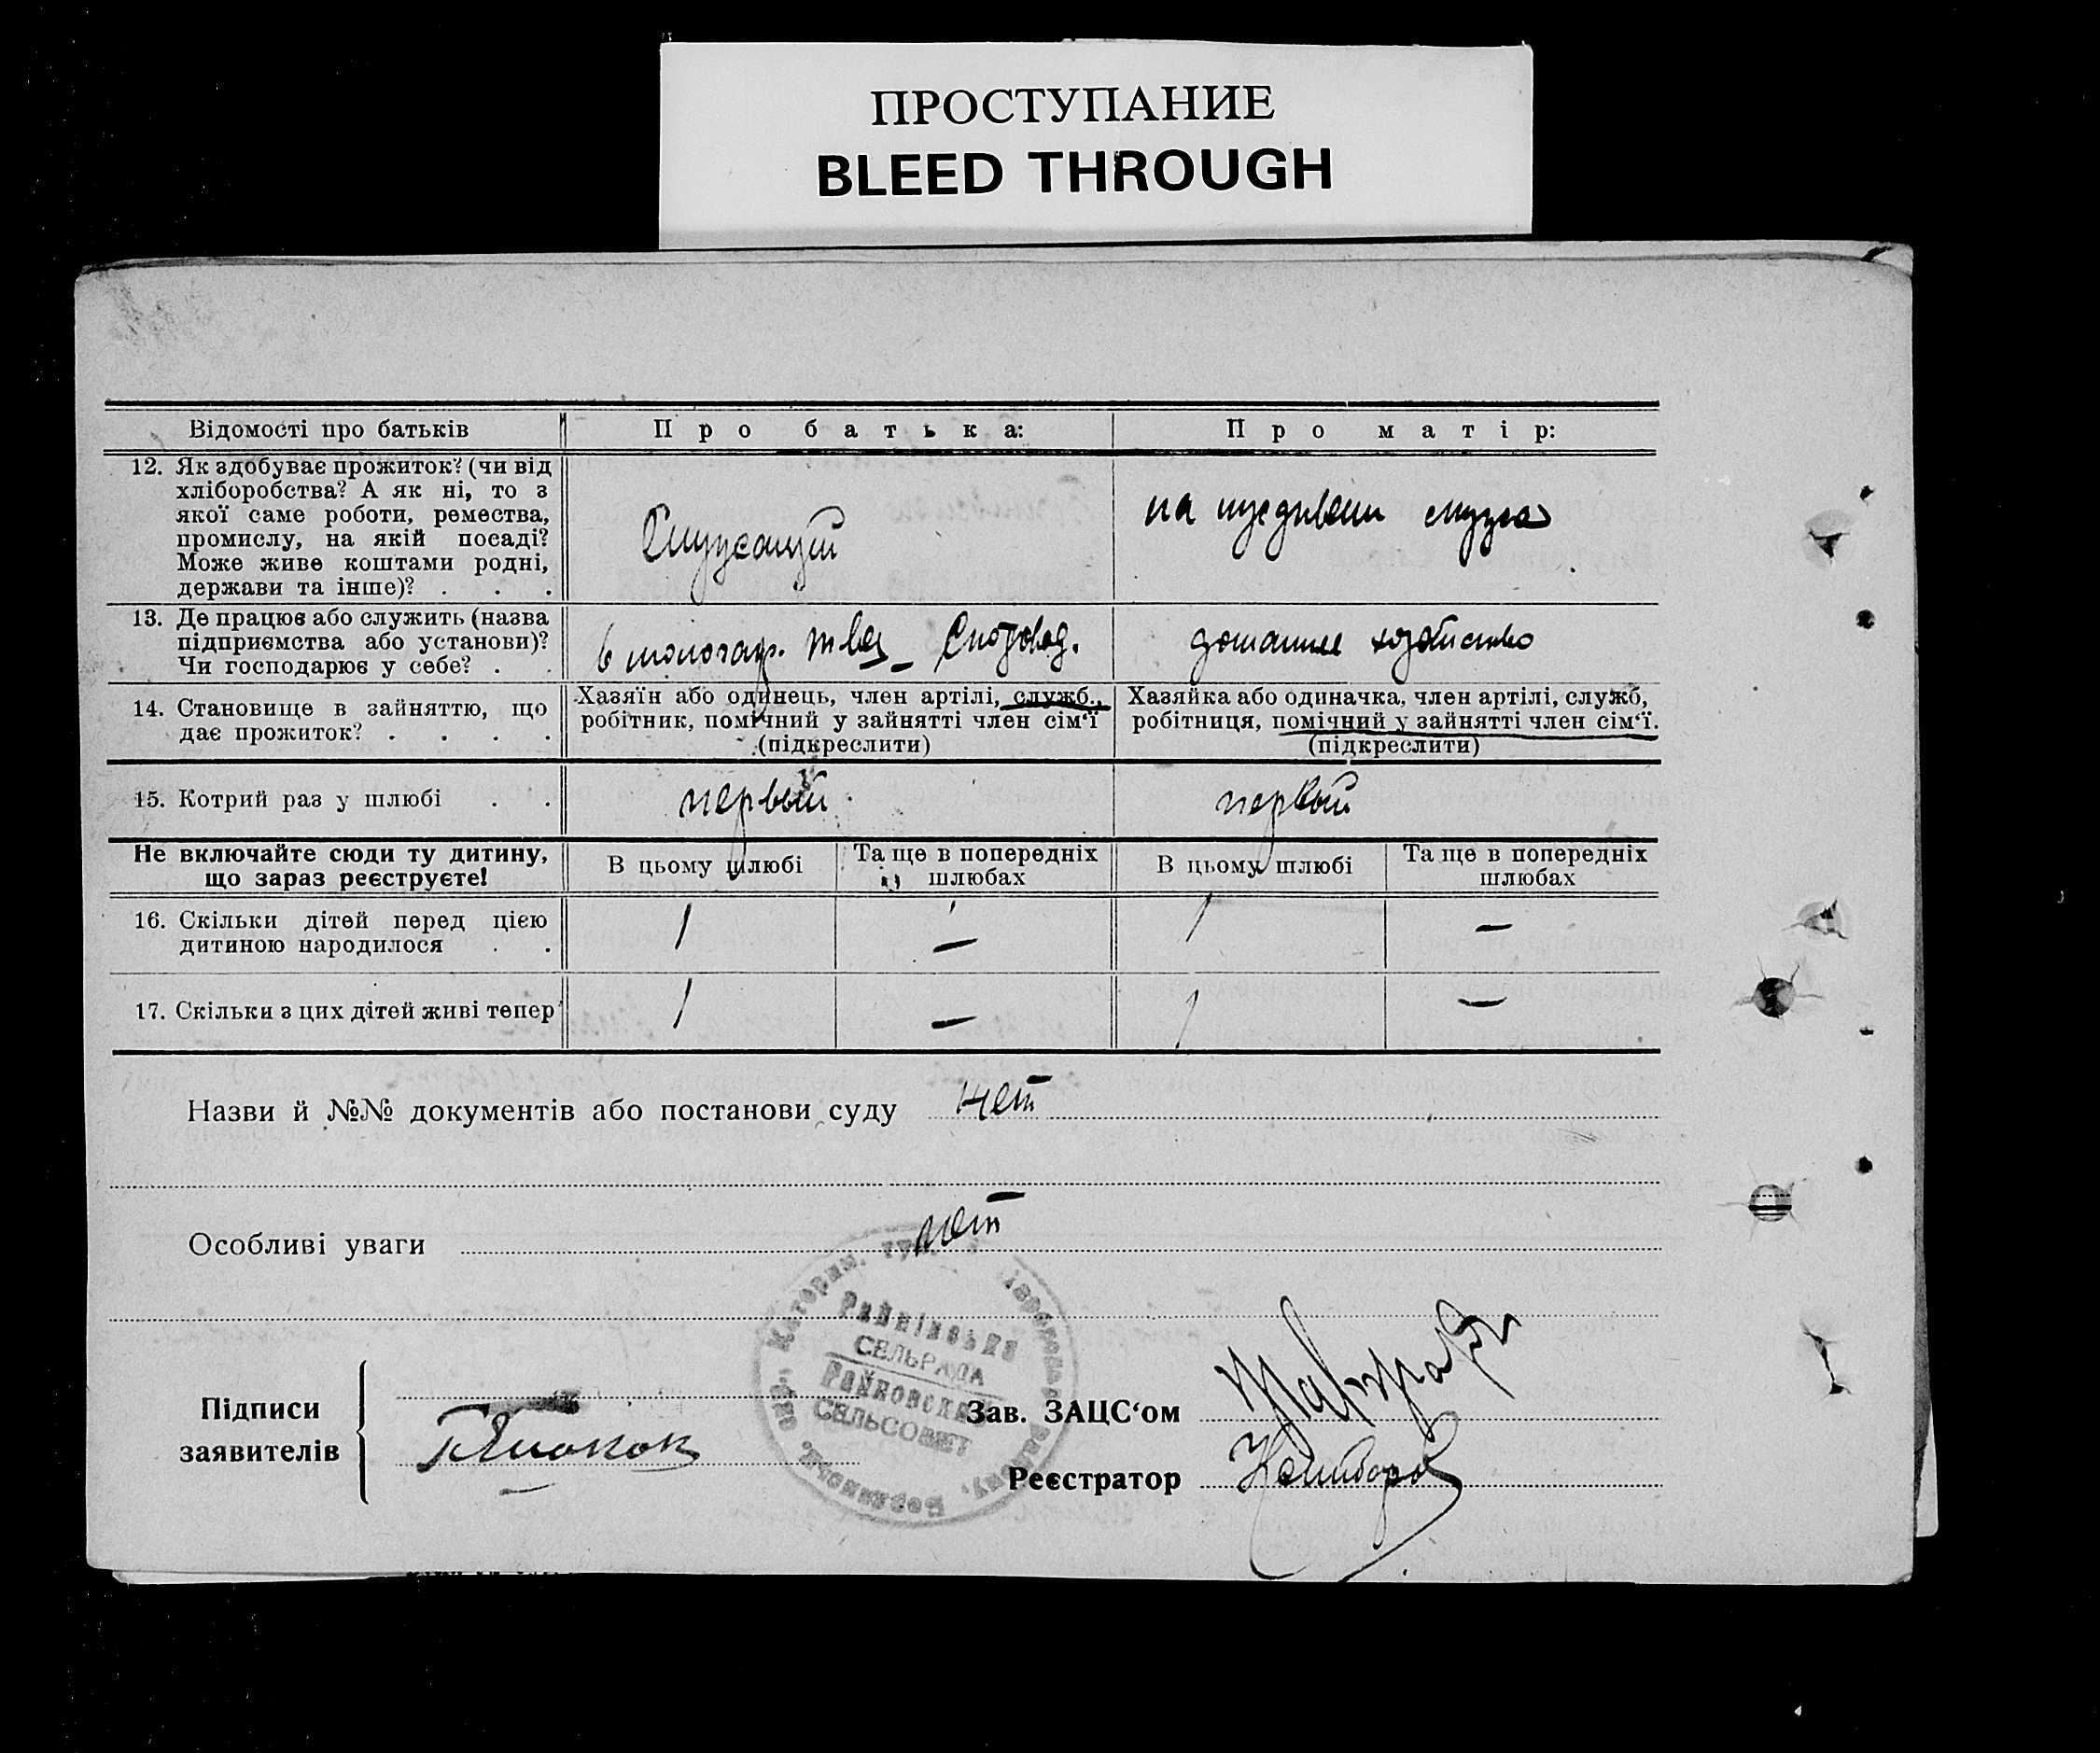 ПРОСТУПАНИЕ
BLEED THROUGH
Відомості про батьків
Про батька:
Про матір:
12. Як здобуває прожиток? (чи від
хліборобства? А як ні, то з
якої саме роботи, ремества,
промислу, на якій посаді?
Може живе коштами родні,
держави та інше)? . . .
Служащий
на иждивении мужа
13. Де працює або служить (назва
підприємства або установи)?
Чи господарює у себе? . .
в
домашнее хозяйство
14. Становище в зайняттю, що
дає прожиток? . . . .
Хазяїн або одинець, член артілі, служб.,
робітник, помічний у зайнятті член сім‘ї
(підкреслити)
Хазяйка або одиначка, член артілі, служб,
робітниця, помічний у зайнятті член сім‘ї.
(підкреслити)
15. Котрий раз у шлюбі . .
первый
первый
Не включайте сюди ту дитину,
що зараз реєструєте!
В цьому шлюбі
Та ще в попередніх
шлюбах
В цьому шлюбі
Та ще в попередніх
шлюбах
16. Скільки дітей перед цією
дитиною народилося . .
1 — 1 —
17. Скільки з цих дітей живі тепер
1 — 1 —
Назви й №№ документів або постанови суду нет
Особливі уваги нет
СЕЛЬРАДА
СЕЛЬСОВЕТ
Підписи
заявителів
Зав. ЗАЦС‘ом
Реєстратор